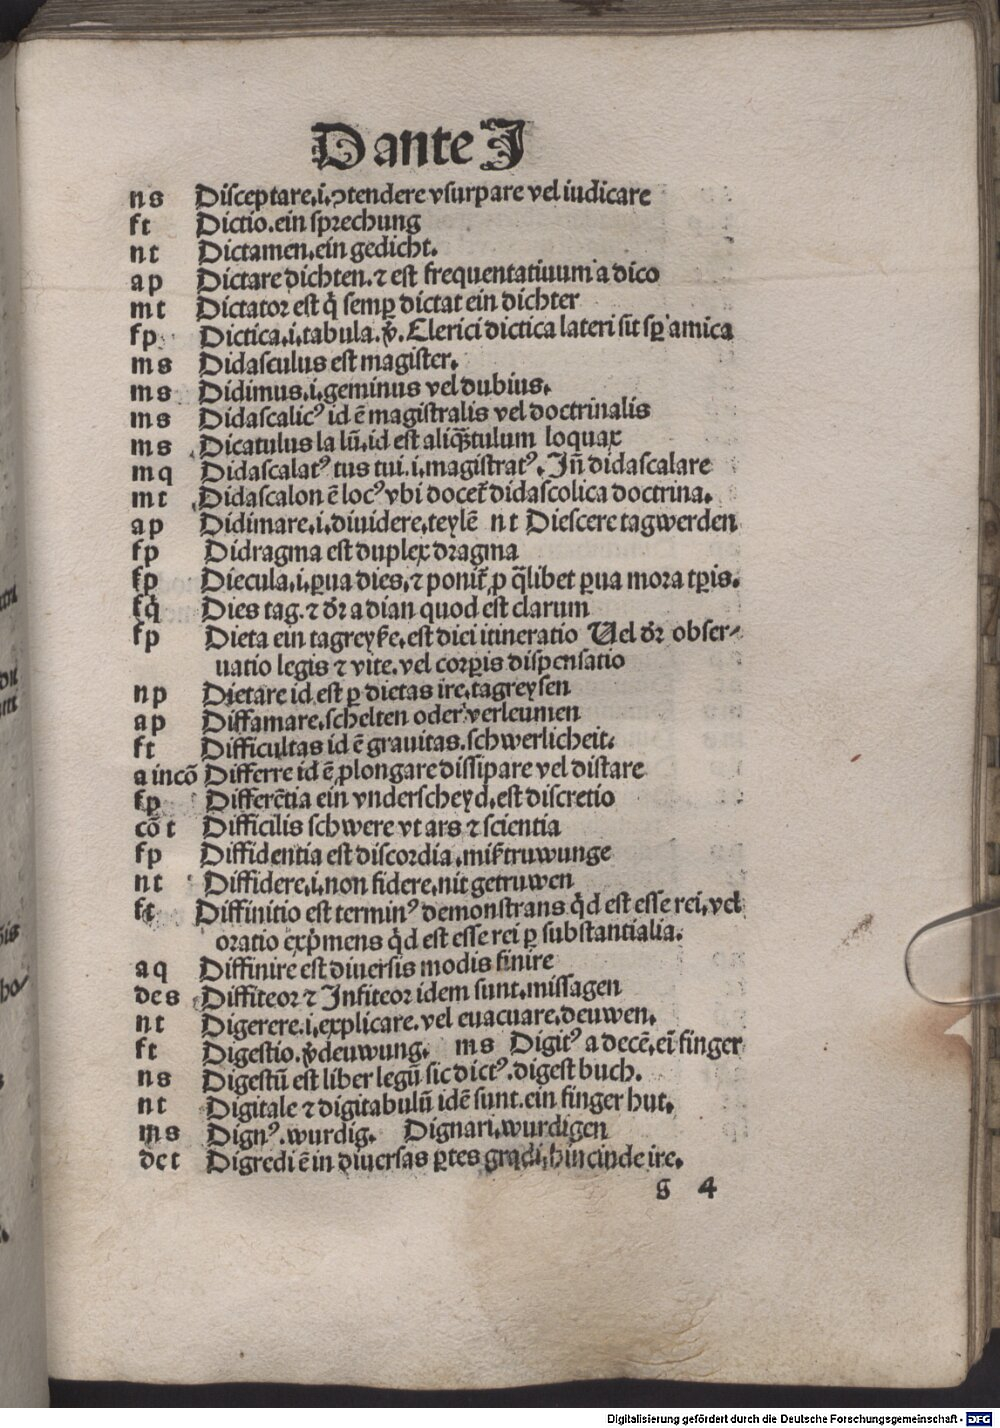 Dante J
ns Disceptare.i.ↄtendere vsurpare vel iudicare
ft Dictio.ein sprechung
nt Dictamen.ein gedicht.
ap Dictare dichten.⁊ est frequentatiuum a dico
mt Dictator est q̄ semꝑ dictat ein dichter
fp Dictica.i.tabula.v̄. Clerici dictica lateri sit sꝑ amica
ms Didasculus est magister.
ms Didimus.i.geminus vel dubius.
ms Didascalicꝰ id ē magistralis vel doctrinalis
ms Dicatulus la lū.id est aliq̄tulum loquax
mq Didascalatꝰ tus tui.i.magistratꝰ. Jn̄ didascalare
mt Didascalon ē locꝰ vbi docet᷑ didascolica doctrina.
ap Didimare.i.diuidere.teylē nt Diescere tagwerden
fp Didragma est duplex dragma
fp Diecula.i.ꝑua dies.⁊ ponit᷑ ꝓ q̄libet ꝑua mora tꝑis.
fq̄ Dies tag.⁊ dr̄ a dian quod est clarum
fp Dieta ein tagreyße.est dici itineratio Uel dr̄ obser⸗
uatio legis ⁊ vite.vel corꝑis dispensatio
np Dietare id est ꝑ dietas ire.tagreysen
ap Diffamare.schelten oder verleumen
ft Difficultas id ē grauitas.schwerlicheit.
a incō Differre id ē ꝓlongare dissipare vel distare
fp Differētia ein vnderscheyd.est discretio
cō t Difficilis schwere vt ars ⁊ scientia
fp Diffidentia est discordia.mißtruwunge
nt Diffidere.i.non fidere.nit getruwen
ft Diffinitio est terminꝰ demonstrans q̄d est esse rei.vel
oratio exp̄mens q̄d est esse rei ꝑ substantialia.
aq Diffinire est diuersis modis finire
des Diffiteor ⁊ Jnfiteor idem sunt.missagen
nt Digerere.i.explicare.vel euacuare.deuwen.
ft Digestio.v̄deuwung. ms Digitꝰ a decē.ei finger
ns Digestū est liber legū sic dictꝰ.digest buch.
nt Digitale ⁊ digitabulū idē sunt.ein finger hut.
ms Dignꝰ.wurdig. Dignari.wurdigen
det Digredi ē in diuersas ꝑtes gradi.hincinde ire.
g 4
Digitalisierung gefördert durch die Deutsche Forschungsgemeinschaft - DFG